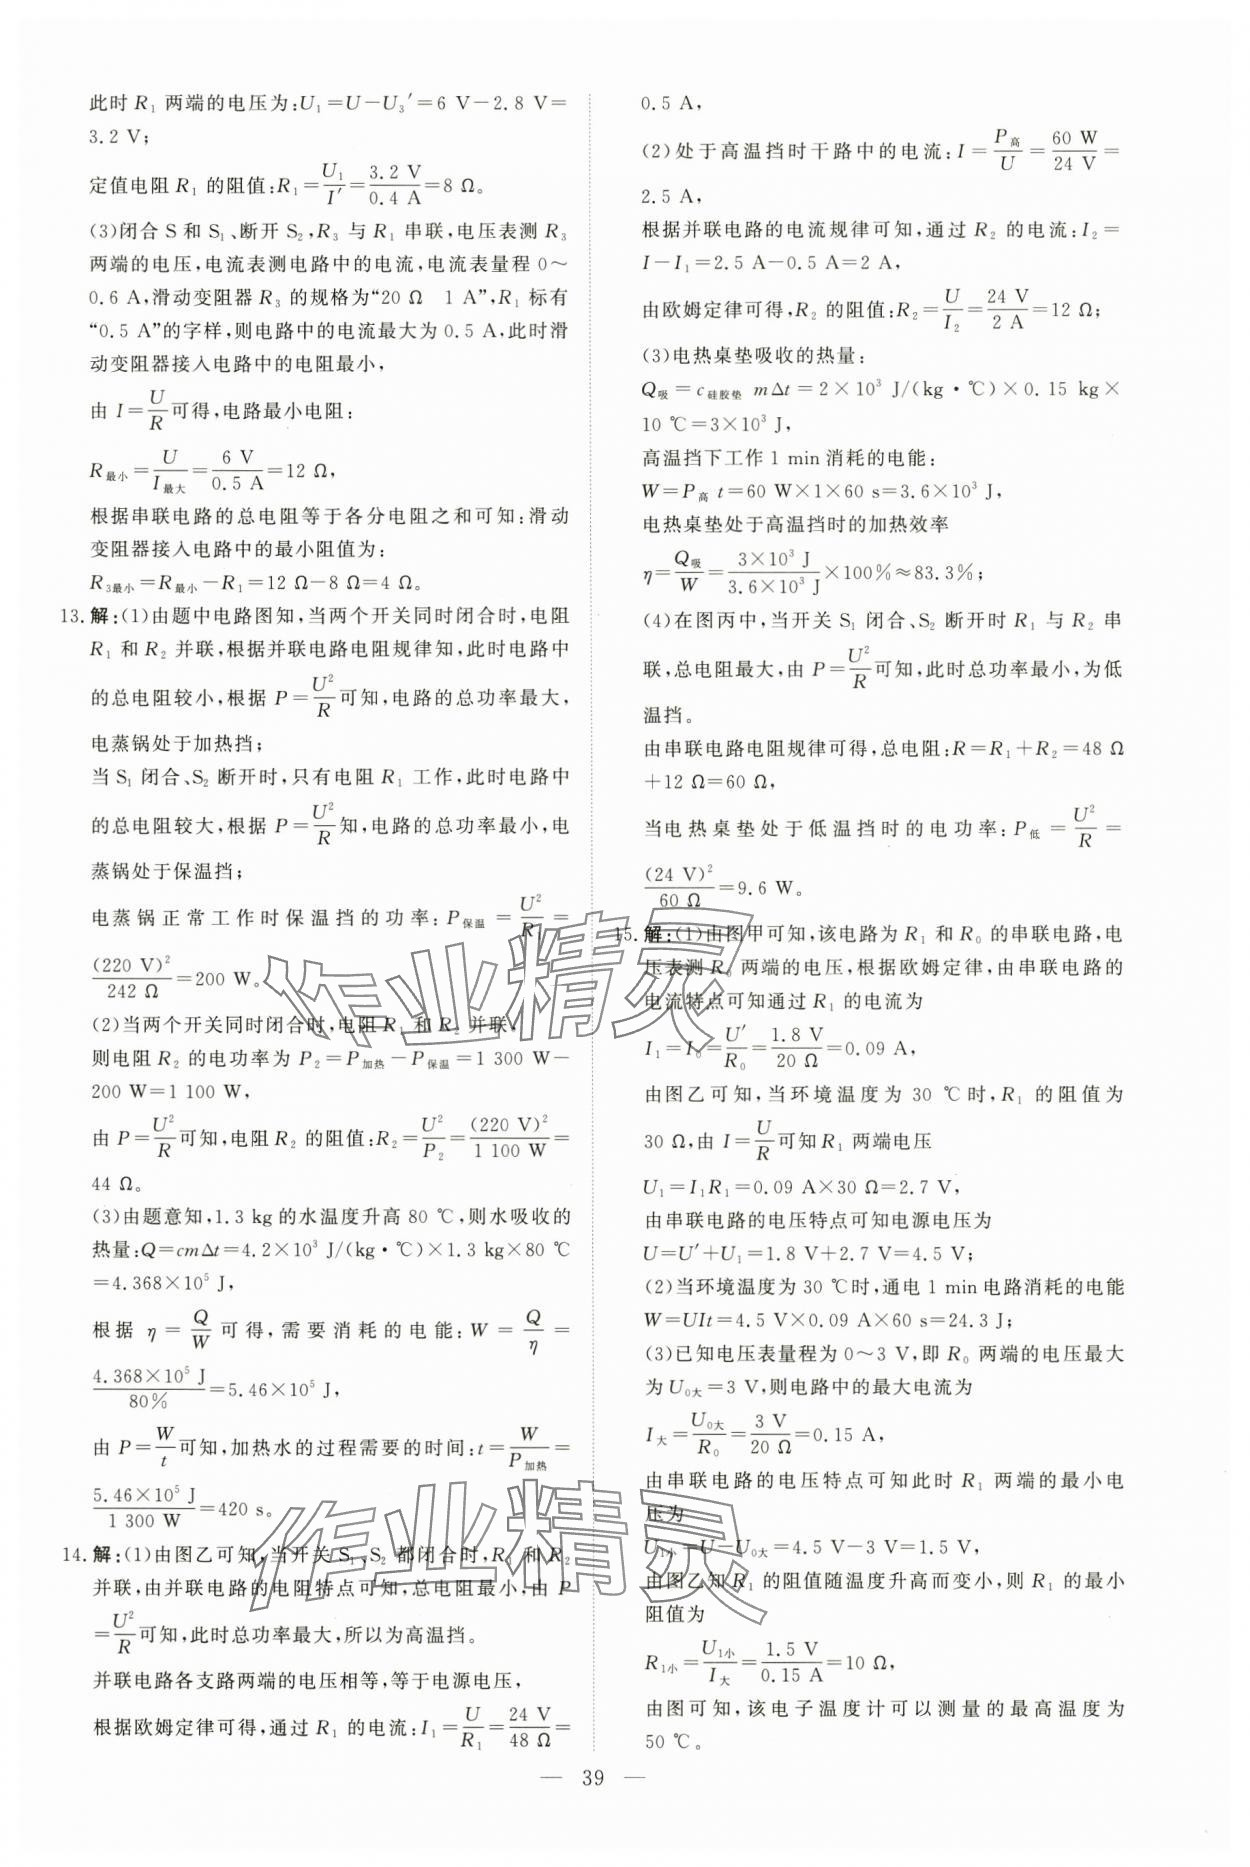 此时 R₁ 两端的电压为:U₁=U-U₃′=6 V-2.8 V=
3.2 V;
定值电阻 R₁ 的阻值:R₁=U₁/I′=3.2 V/0.4 A=8 Ω。
(3)闭合 S 和 S₁、断开 S₂,R₃ 与 R₁ 串联,电压表测 R₃
两端的电压,电流表测电路中的电流,电流表量程 0~
0.6 A,滑动变阻器 R₃ 的规格为“20 Ω 1 A”,R₁ 标有
“0.5 A”的字样,则电路中的电流最大为 0.5 A,此时滑
动变阻器接入电路中的电阻最小,
由 I=U/R可得,电路最小电阻:
R最小=U/I最大=6 V/0.5 A=12 Ω,
根据串联电路的总电阻等于各分电阻之和可知:滑动
变阻器接入电路中的最小阻值为:
R₃最小=R最小-R₁=12 Ω-8 Ω=4 Ω。
13. 解:(1)由题中电路图知,当两个开关同时闭合时,电阻
R₁ 和 R₂ 并联,根据并联电路电阻规律知,此时电路中
的总电阻较小,根据 P=U²/R可知,电路的总功率最大,
电蒸锅处于加热挡;
当 S₁ 闭合、S₂ 断开时,只有电阻 R₁ 工作,此时电路中
的总电阻较大,根据 P=U²/R知,电路的总功率最小,电
蒸锅处于保温挡;
电蒸锅正常工作时保温挡的功率:P保温=U²/R₁=
(220 V)²/242 Ω=200 W。
(2)当两个开关同时闭合时,电阻 R₁ 和 R₂ 并联,
则电阻 R₂ 的电功率为 P₂=P加热-P保温=1 300 W-
200 W=1 100 W,
由 P=U²/R可知,电阻 R₂ 的阻值:R₂=U²/P₂=(220 V)²/1 100 W=
44 Ω。
(3)由题意知,1.3 kg的水温度升高 80 ℃,则水吸收的
热量:Q=cmΔt=4.2×10³ J/(kg·℃)×1.3 kg×80 ℃
=4.368×10⁵ J,
根据 η=Q/W可得,需要消耗的电能:W=Q/η=
4.368×10⁵ J/80%=5.46×10⁵ J,
由 P=W/t可知,加热水的过程需要的时间:t=W/P加热=
5.46×10⁵ J/1 300 W=420 s。
14. 解:(1)由图乙可知,当开关 S₁、S₂ 都闭合时,R₁ 和 R₂
并联,由并联电路的电阻特点可知,总电阻最小,由 P
=U²/R可知,此时总功率最大,所以为高温挡。
并联电路各支路两端的电压相等,等于电源电压,
根据欧姆定律可得,通过 R₁ 的电流:I₁=U/R₁=24 V/48 Ω=
0.5 A,
(2)处于高温挡时干路中的电流:I=P高/U=60 W/24 V=
2.5 A,
根据并联电路的电流规律可知,通过 R₂ 的电流:I₂=
I-I₁=2.5 A-0.5 A=2 A,
由欧姆定律可得,R₂ 的阻值:R₂=U/I₂=24 V/2 A=12 Ω;
(3)电热桌垫吸收的热量:
Q吸=c硅胶垫 mΔt=2×10³ J/(kg·℃)×0.15 kg×
10 ℃=3×10³ J,
高温挡下工作 1 min消耗的电能:
W=P高 t=60 W×1×60 s=3.6×10³ J,
电热桌垫处于高温挡时的加热效率
η=Q吸/W=3×10³ J/3.6×10³ J×100%≈83.3%;
(4)在图丙中,当开关 S₁ 闭合、S₂ 断开时 R₁ 与 R₂ 串
联,总电阻最大,由 P=U²/R可知,此时总功率最小,为低
温挡。
由串联电路电阻规律可得,总电阻:R=R₁+R₂=48 Ω
+12 Ω=60 Ω,
当电热桌垫处于低温挡时的电功率:P低=U²/R=
(24 V)²/60 Ω=9.6 W。
15. 解:(1)由图甲可知,该电路为 R₁ 和 R₀ 的串联电路,电
压表测 R₀ 两端的电压,根据欧姆定律,由串联电路的
电流特点可知通过 R₁ 的电流为
I₁=I₀=U′/R₀=1.8 V/20 Ω=0.09 A,
由图乙可知,当环境温度为 30 ℃时,R₁ 的阻值为
30 Ω,由 I=U/R可知R₁ 两端电压
U₁=I₁R₁=0.09 A×30 Ω=2.7 V,
由串联电路的电压特点可知电源电压为
U=U′+U₁=1.8 V+2.7 V=4.5 V;
(2)当环境温度为 30 ℃时,通电 1 min 电路消耗的电能
W=UIt=4.5 V×0.09 A×60 s=24.3 J;
(3)已知电压表量程为 0~3 V,即 R₀ 两端的电压最大
为 U₀大=3 V,则电路中的最大电流为
I大=U₀大/R₀=3 V/20 Ω=0.15 A,
由串联电路的电压特点可知此时 R₁ 两端的最小电
压为
U₁小=U-U₀大=4.5 V-3 V=1.5 V,
由图乙知 R₁ 的阻值随温度升高而变小,则 R₁ 的最小
阻值为
R₁小=U₁小/I大=1.5 V/0.15 A=10 Ω,
由图可知,该电子温度计可以测量的最高温度为
50 ℃。
— 39 —
作业精灵
作业精灵